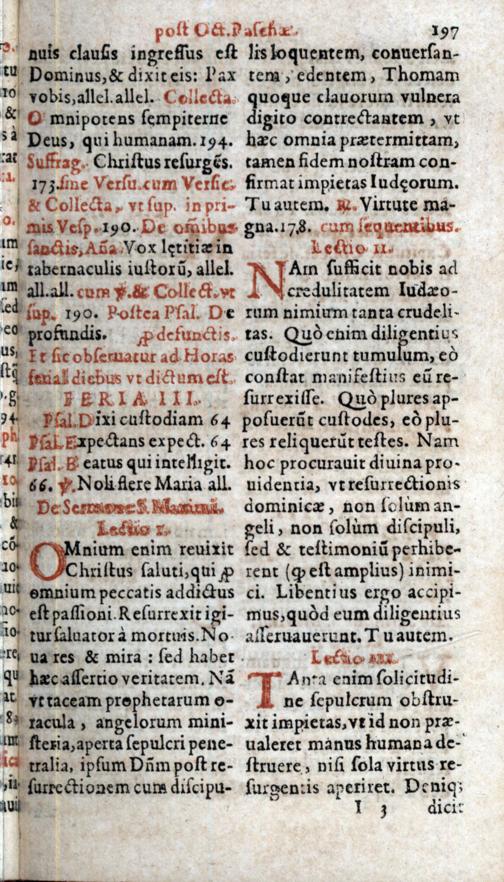 post Oct. Paschæ. 197
nuis clausis ingressus est
Dominus, & dixit eis: Pax
vobis, allel. allel. Collecta.
Omnipotens sempiterne
Deus, qui humanam. 194.
Suffrag. Christus resurgēs.
173. sine Versu. cum Versic.
& Collecta, vt sup. in pri-
mis Vesp. 190. De omibus
sanctis, Aña. Vox lętitiæ in
tabernaculis iustorū, allel.
all. all. cum ℣. & Collect. vt
sup. 190. Postea Psal. De
profundis. ꝓ defunctis.
Et sic obseruatur ad Horas
ferial diebus vt dictum est.
FERIA III.
Psal. Dixi custodiam 64
Psal. Expectans expect. 64
Psal. Beatus qui intelligit.
66. ℣. Noli flere Maria all.
De Sermone S. Maximi.
Lectio I.
OMnium enim reuixit
Christus saluti, qui ꝓ
omnium peccatis addictus
est passioni. Resurrexit igi-
tur saluator à mortuis. No
ua res & mira: sed habet
hæc assertio veritatem. Nā
vt taceam prophetarum o-
racula, angelorum mini-
steria, aperta sepulcri pene-
tralia, ipsum Dñm post re-
surrectionem cum discipu-
lis loquentem, conuersan-
tem, edentem, Thomam
quoque clauorum vulnera
digito contrectantem, vt
hæc omnia prætermittam,
tamen fidem nostram con-
firmat impietas Iudęorum.
Tu autem. ℟. Virtute ma-
gna. 178. cum sequentibus.
Lectio II.
NAm sufficit nobis ad
credulitatem Iudæo-
rum nimium tanta crudeli-
tas. Quò enim diligentius
custodierunt tumulum, eò
constat manifestius eū re-
surrexisse. Quò plures ap-
posuerūt custodes, eò plu-
res reliquerūt testes. Nam
hoc procurauit diuina pro-
uidentia, vt resurrectionis
dominicæ, non solùm an-
geli, non solùm discipuli,
sed & testimoniū perhibe-
rent (ꝙ est amplius) inimi-
ci. Libentius ergo accipi-
mus, quòd eum diligentius
asseruauerunt. Tu autem.
Lectio III.
TAnta enim solicitudi-
ne sepulcrum obstru-
xit impietas, vt id non præ-
ualeret manus humana de-
struere, nisi sola virtus re-
surgentis aperiret. Deniq;
I 3 dicit